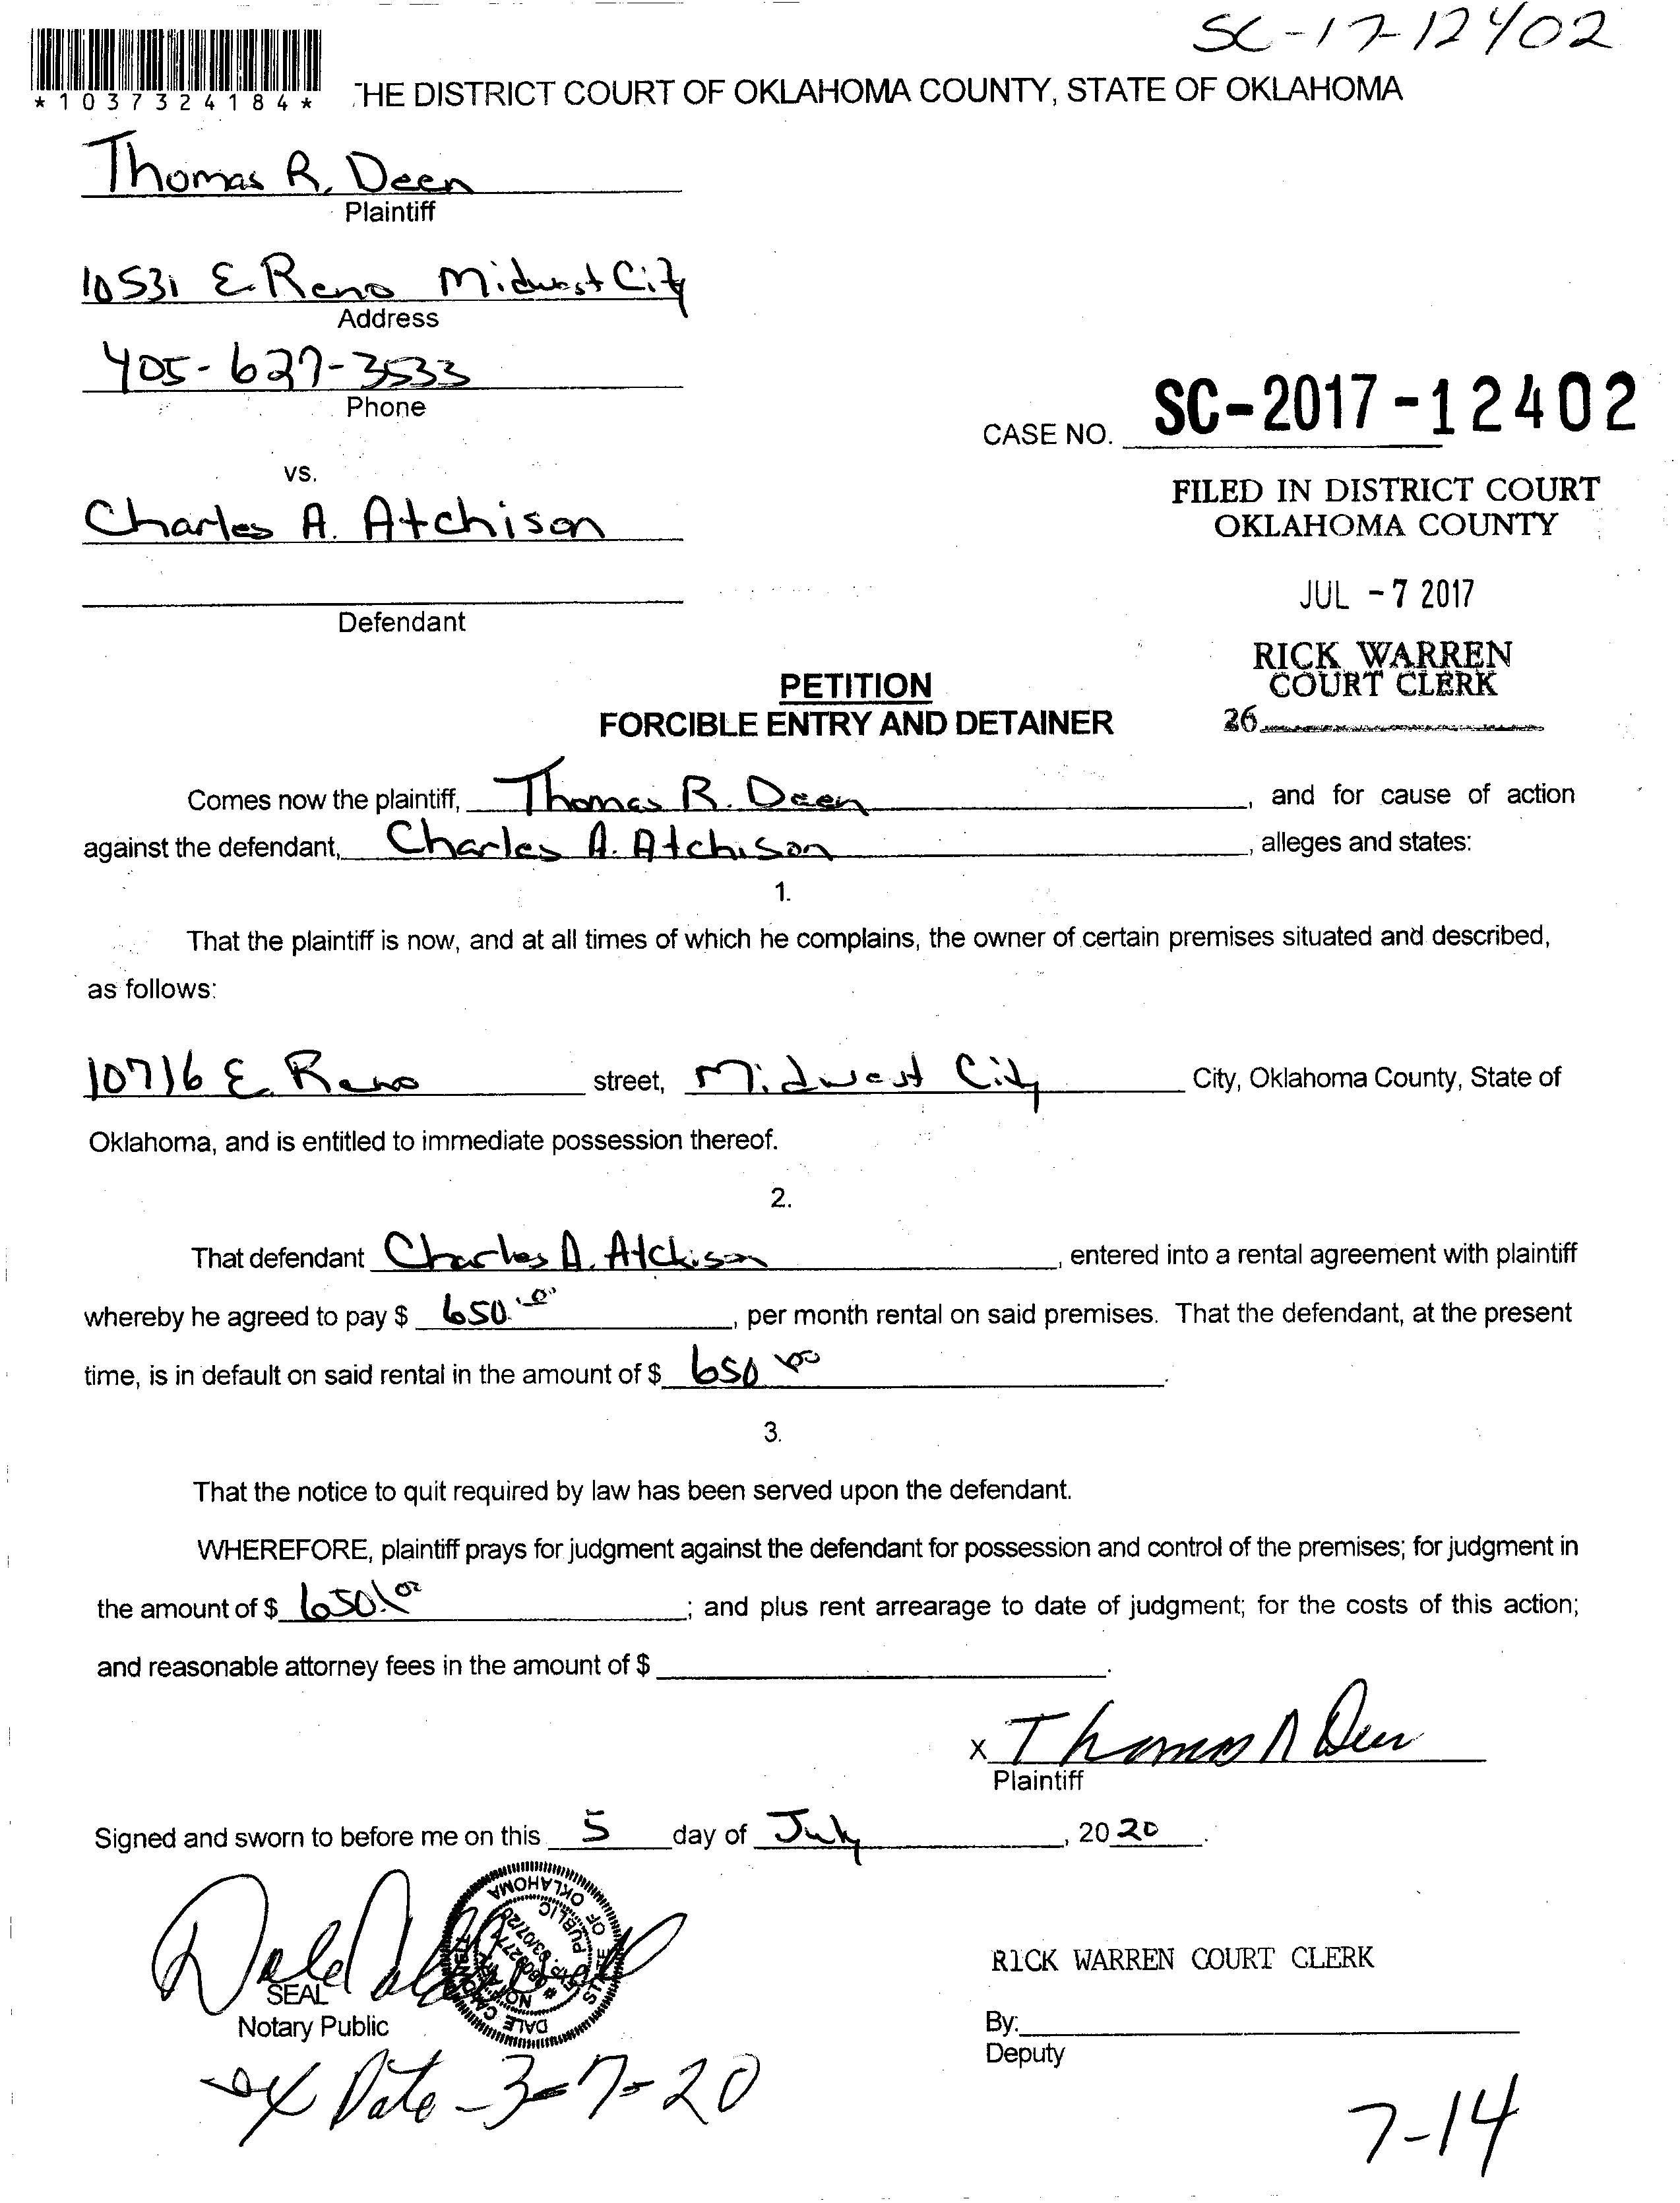 SC-17-12402
*1037324184*
THE DISTRICT COURT OF OKLAHOMA COUNTY, STATE OF OKLAHOMA
Thomas R. Deen
Plaintiff
10531 E. Reno Midwest City
Address
405-627-3533
Phone
CASE NO. SC-2017-12402
vs.
FILED IN DISTRICT COURT
OKLAHOMA COUNTY
Charles A. Atchison
JUL -7 2017
Defendant
RICK WARREN
COURT CLERK
26
PETITION
FORCIBLE ENTRY AND DETAINER
Comes now the plaintiff, Thomas R. Deen, and for cause of action
against the defendant, Charles A. Atchison, alleges and states:
1.
That the plaintiff is now, and at all times of which he complains, the owner of certain premises situated and described,
as follows:
10716 E. Reno street, Midwest City City, Oklahoma County, State of
Oklahoma, and is entitled to immediate possession thereof.
2.
That defendant Charles A. Atchison, entered into a rental agreement with plaintiff
whereby he agreed to pay $ 650.00, per month rental on said premises. That the defendant, at the present
time, is in default on said rental in the amount of $ 650.00.
3.
That the notice to quit required by law has been served upon the defendant.
WHEREFORE, plaintiff prays for judgment against the defendant for possession and control of the premises; for judgment in
the amount of $ 650.00; and plus rent arrearage to date of judgment; for the costs of this action;
and reasonable attorney fees in the amount of $
x Thomas R Deen
Plaintiff
Signed and sworn to before me on this 5 day of July, 20 20.
STATE OF OKLAHOMA
PUBLIC
DALE
SEAL
Notary Public
RICK WARREN COURT CLERK
By:
Deputy
Ex Date - 3-7-20
7-14